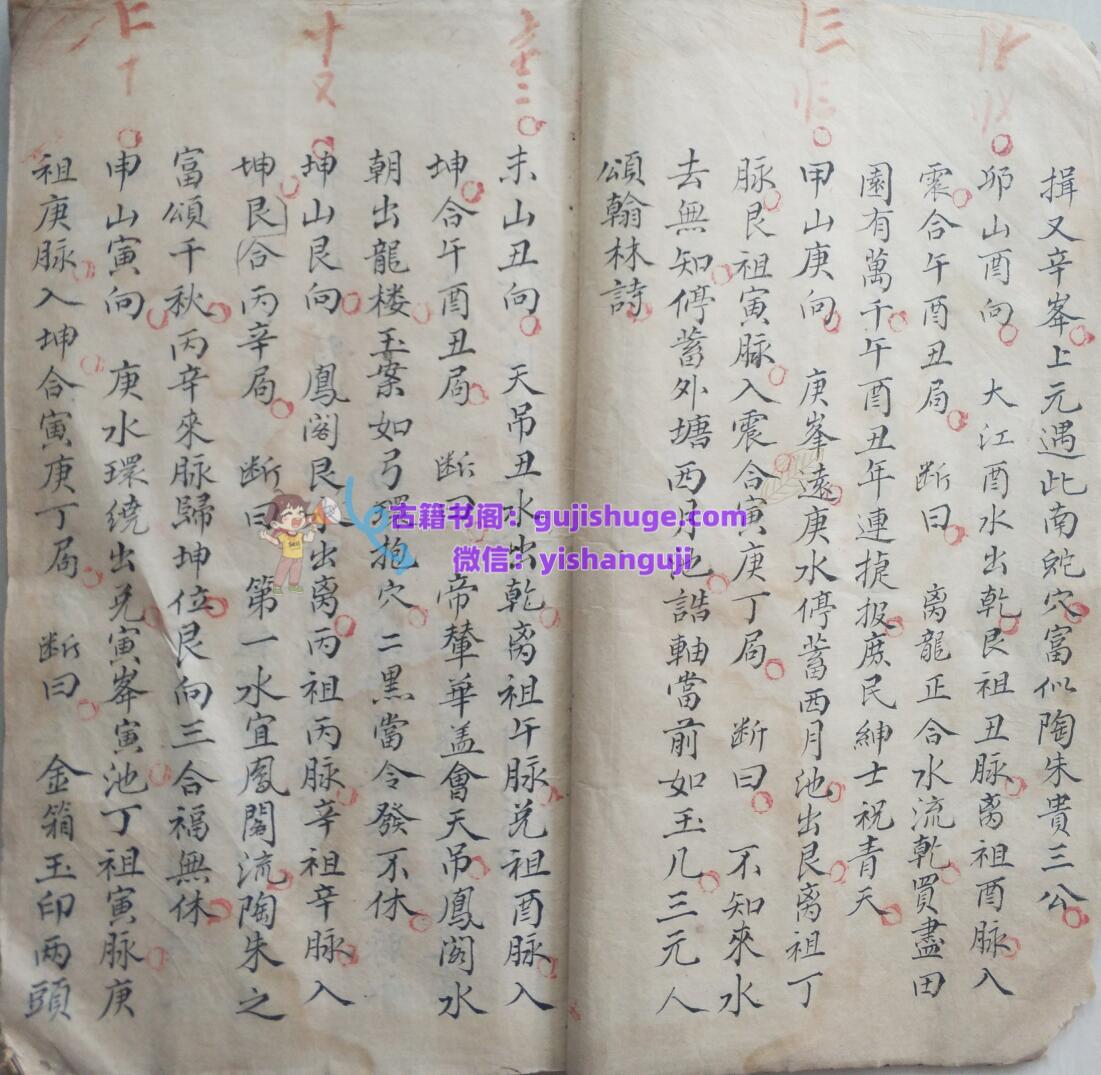 揖又辛峯上元遇此南蛇穴富似陶朱貴三公
卯山酉向　大江酉水出乾艮祖丑脉离祖酉脉入
震合午酉丑局　断曰　离龍正合水流乾買盡田
園有萬千午酉丑年連捷报庶民紳士祝青天
甲山庚向　庚峯遠庚水停蓄酉月池出艮离祖丁
脉艮祖寅脉入震合寅庚丁局　断曰　不知來水
去無知停蓄外塘西月池誥軸當前如玉几三元人
頌翰林詩
十三
未山丑向　天吊丑水出乾离祖午脉兑祖酉脉入
坤合午酉丑局　断曰　帝輦華盖會天吊鳳阁水
朝出龍楼玉案如弓環抱穴二黑當令發不休
十又
坤山艮向　鳳阁艮出离丙祖丙脉辛祖辛脉入
坤艮合丙辛局　断曰　第一水宜鳳閣流陶朱之
富頌千秋丙辛來脉歸坤位艮向三合福無休
申山寅向　庚水環繞出兑寅峯寅池丁祖寅脉庚
祖庚脉入坤合寅庚丁局　断曰　金箱玉印两頭
古籍书阁：gujishuge.com
微信：yishanguji